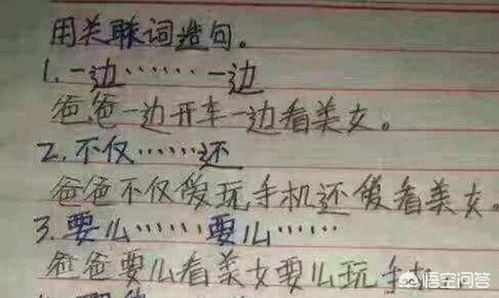 用关联词造句。
1.一边……一边
爸爸一边开车一边看美女。
2.不仅……还
爸爸不仅爱玩手机还爱看美女。
3.要么……要么……
爸爸要么看美女要么玩手机
悟空问答